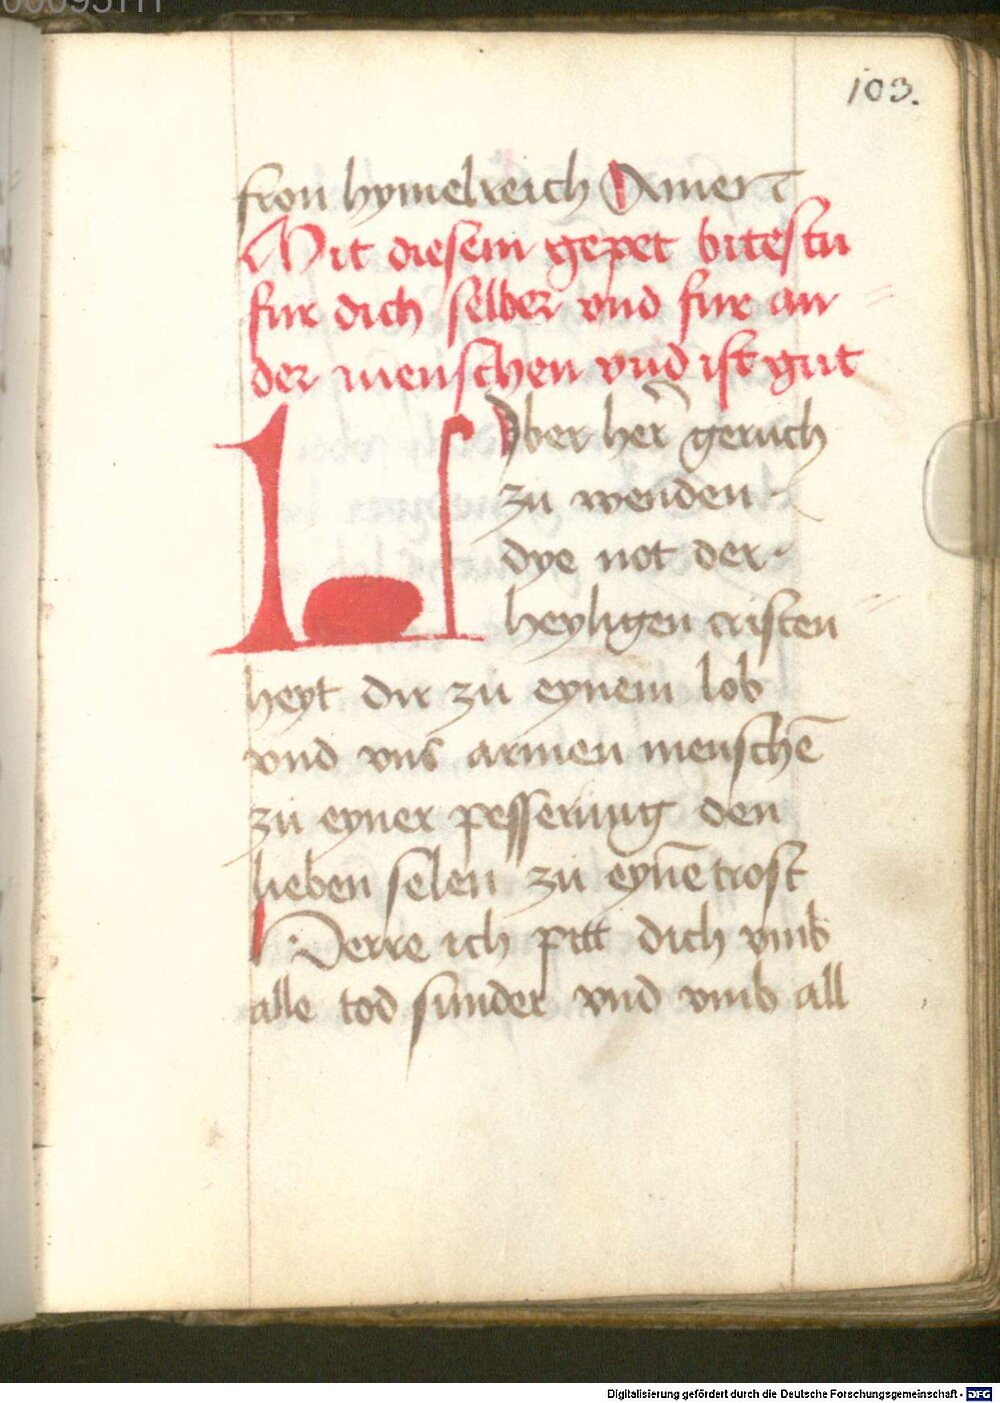 103.
fron hymelreich Amen
Mit diesem gepet bitestu
fur dich selber vnd fur an
der menschen vnd ist gut
Lober her̄ geruch
zu wenden
dye not der
heyligen cristen
heyt dir zu eynem lob
vnd vns armen menschē
zu eyner pesserung den
lieben selen zu eynē trost
Herre ich pitt dich vmb
alle tod sunder vnd vmb all
Digitalisierung gefördert durch die Deutsche Forschungsgemeinschaft - DFG